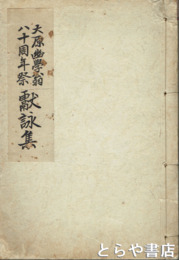 大原幽学翁
八十周年祭
獻詠集
とらや書店